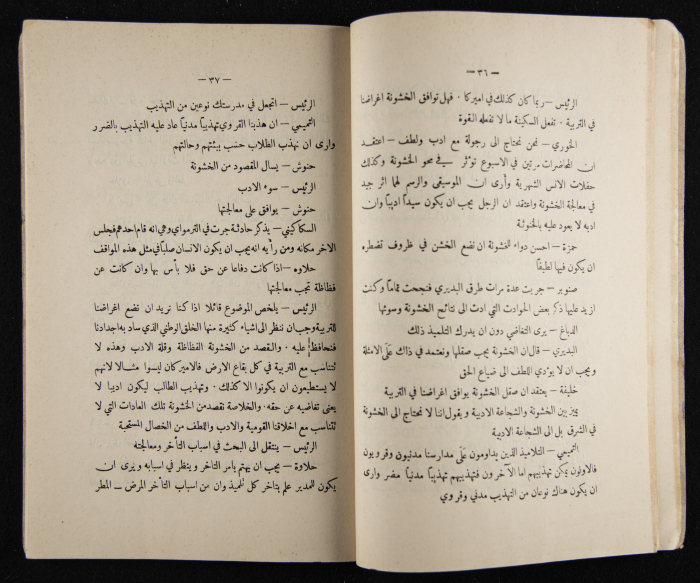 — ٣٦ —
الرئيس — ربما كان كذلك في اميركا . فهل توافق الخشونة اغراضنا
في التربية . تفعل السكينة ما لا تفعله القوة
الخوري — نحن نحتاج الى رجولة مع ادب ولطف — اعتقد
ان المحاضرات مرتين في الاسبوع تؤثر في محو الخشونة وكذلك
حفلات الانس الشهرية وأرى ان الموسيقى والرسم لهما اثر جيد
في معالجة الخشونة واعتقد ان الرجل يجب ان يكون سيداً اديباً وان
ادبه لا يعود عليه بالخنوثة
حمزة — احسن دواء للخشونة ان نضع الخشن في ظروف تضطره
ان يكون فيها لطيفاً
صنوبر — جربت عدة مرات طرق البديري فنجحت تماماً وكنت
ازيد عليها ذكر بعض الحوادث التي ادت الى نتائج الخشونة وسوئها
الدباغ — يرى التغاضي دون ان يدرك التلميذ ذلك
البديري — قال ان الخشونة يجب صقلها ونعتمد في ذاك على الامثلة
ويجب ان لا يؤدي اللطف الى ضياع الحق
خليفة — يعتقد ان صقل الخشونة يوافق اغراضنا في التربية
يميز بين الخشونة والشجاعة الادبية ويقول اننا لا نحتاج الى الخشونة
في الشرق بل الى الشجاعة الادبية
التميمي — التلاميذ الذين يداومون على مدارسنا مدنيون وقرويون
فالاولون يمكن تهذيبهم اما الآخرون فتهذيبهم تهذيباً مدنياً مضر وارى
ان يكون هناك نوعان من التهذيب مدني وقروي
— ٣٧ —
الرئيس — اتجعل في مدرستك نوعين من التهذيب
التميمي — ان هذبنا القروي تهذيباً مدنياً عاد عليه التهذيب بالضرر
وارى ان نهذب الطلاب حسب بيئتهم وحالتهم
حنوش — يسال المقصود من الخشونة
الرئيس — سوء الادب
حنوش — يوافق على معالجتها
السكاكيني — يذكر حادثة جرت في الترمواي وهي انه قام احدهم فجلس
الاخر مكانه ومن رأيه انه يجب ان يكون الانسان صلباً في مثل هذه المواقف
حلاوه — اذا كانت دفاعا عن حق فلا بأس بها وان كانت عن
فظاظة تجب معالجتها
الرئيس — يلخص الموضوع قائلا اذا كنا نريد ان نضع اغراضنا
للتربية وجب ان ننظر الى اشياء كثيرة منها الخلق الوطني الذي ساد به اجدادنا
فنحافظ عليه . والقصد من الخشونة الفظاظة وقلة الادب وهذه لا
تتناسب مع التربية في كل بقاع الارض فالاميركان ليسوا مثالا لانهم
لا يستطيعون ان يكونوا الا كذلك . وتهذيب الطالب ليكون اديبا لا
يعني تغاضيه عن حقه . والخلاصة نقصد من الخشونة تلك العادات التي لا
تتناسب مع اخلاقنا القومية والادب واللطف من الخصال المستحبة
الرئيس — ينتقل الى البحث في اسباب التأخر ومعالجته
حلاوة — يجب ان يهتم بامر التاخر وينظر في اسبابه ويرى ان
يكون للمدير علم بتاخر كل تلميذ وان من اسباب التأخر المرض — المطر